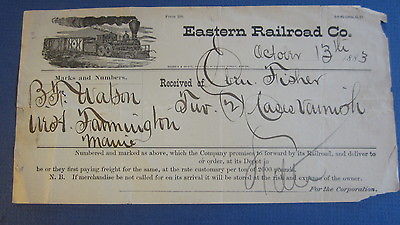 Eastern Railroad Co.
October 13th 1883
Marks and Numbers.
Received of Corn. Fisher
B. F. Watson
Two (2) Cases Varnish
West Farmington
Maine
Numbered and marked as above, which the Company promises to forward by its Railroad, and deliver to
or order, at its Depot in
he or they first paying freight for the same, at the rate customary per ton of 2000 pounds.
N. B. If merchandise be not called for on its arrival it will be stored at the risk and expense of the owner.
For the Corporation.